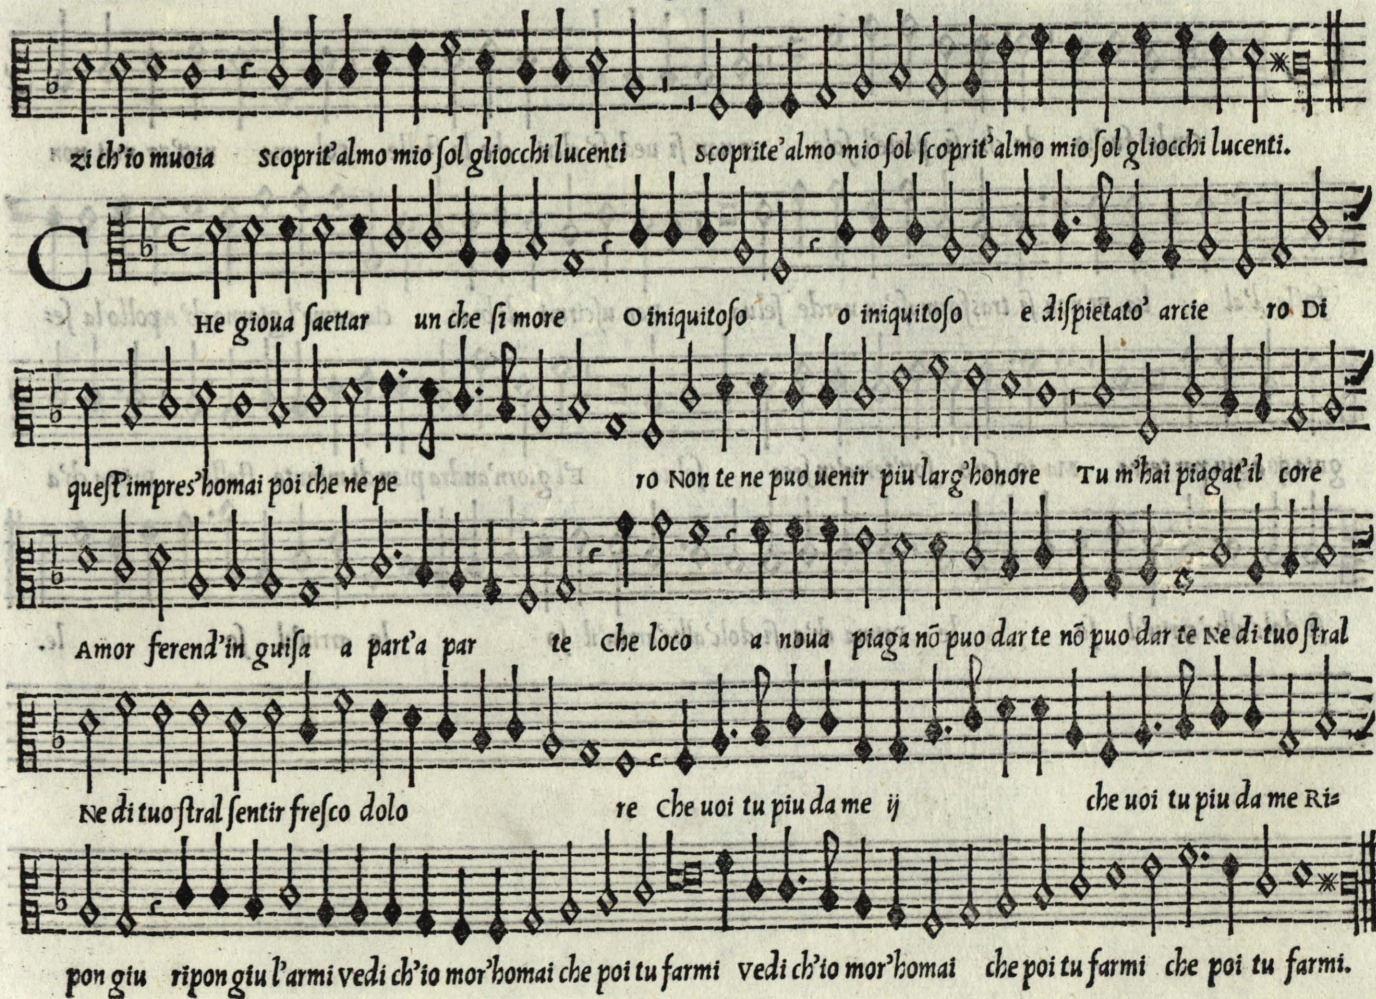 zi ch'io muoia scoprit'almo mio ſol gliocchi lucenti scoprite'almo mio ſol ſcoprit'almo mio ſol gliocchi lucenti.
C
He gioua ſaettar un che ſi more O iniquitoſo o iniquitoſo e diſpietato' arcie ro Di
queſt'impres'homai poi che ne pe ro Non te ne puo uenir piu larg'honore Tu m'hai piagat'il core
Amor ferend'in guiſa a part'a par te Che loco a noua piaga nō puo dar te nō puo dar te Ne di tuo ſtral
Ne di tuo ſtral ſentir freſco dolo re Che uoi tu piu da me ij che uoi tu piu da me Ri=
pon giu ripon giu l'armi vedi ch'io mor'homai che poi tu farmi vedi ch'io mor'homai che poi tu farmi che poi tu farmi.